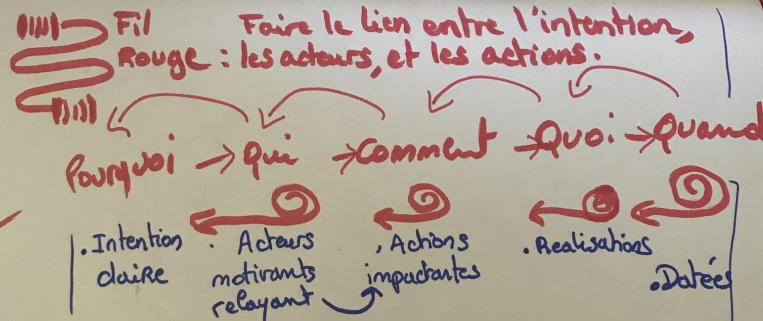 Fil Faire le lien entre l'intention,
Rouge : les acteurs, et les actions.
Pourquoi → Qui → Comment → Quoi → Quand
. Intention
claire
. Acteurs
motivants
relayant
. Actions
impactantes
. Realisations
. Datées